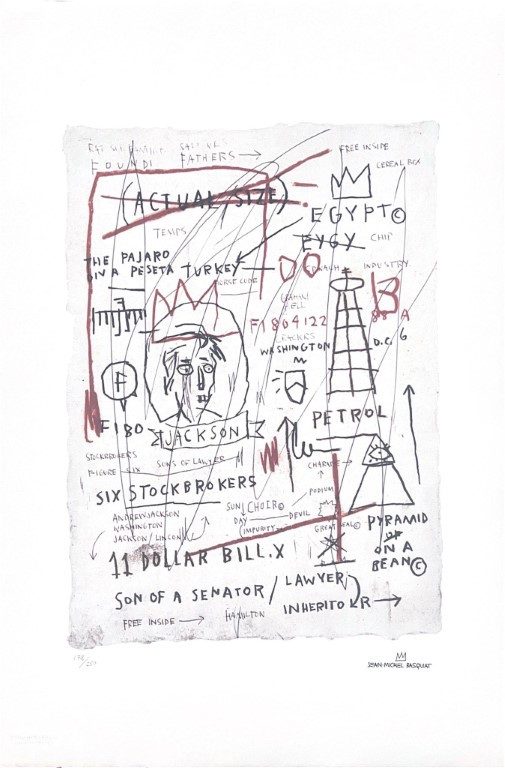 FOUNDI FATHERS →
FREE INSIDE
CEREAL BOX
(ACTUAL SIZE)
EGYPT©
TEMPS
EYGY CHIP
THE PAJARO
DIV A PESETA TURKEY
INDUSTRY
B
F1864122
88 A
WASHINGTON
D.C. 6
F
PETROL
F18O
JACKSON
STOCKBROKERS
FIGURE SIX SONS OF LAWYER
CHARADE →
SIX STOCKBROKERS
PODIUM
SUN CHOIR©
DAY DEVIL
(IMPURITY
ANDREW JACKSON
WASHINGTON
JACKSON/LINCOLN
GREAT SEAL©
PYRAMID
OF
ON A
BEAN©
11 DOLLAR BILL.X
SON OF A SENATOR / LAWYER)
INHERITO R →
FREE INSIDE → HAMILTON
JEAN-MICHEL BASQUIAT